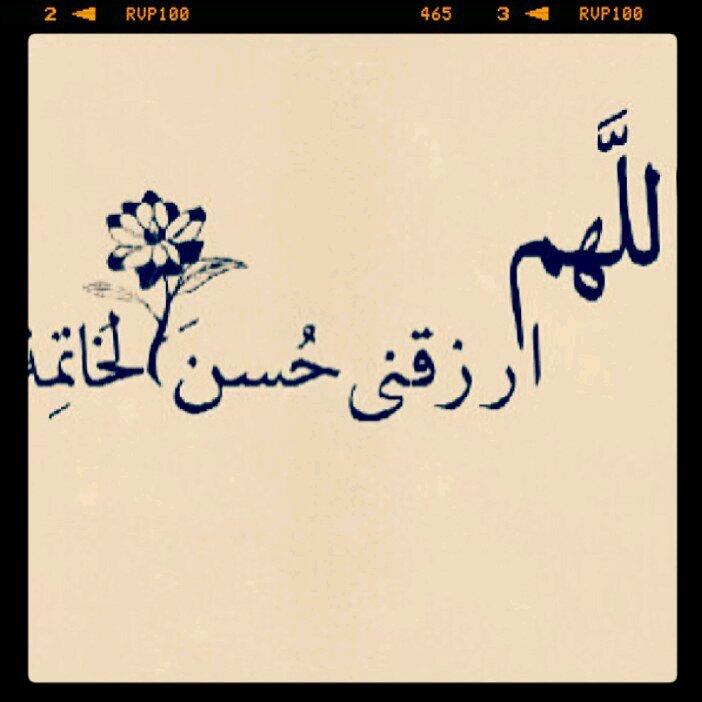 2 ◄ RVP100 465 3 ◄ RVP100
للَّهم
ارزقنى حُسنَ الخَاتمِة